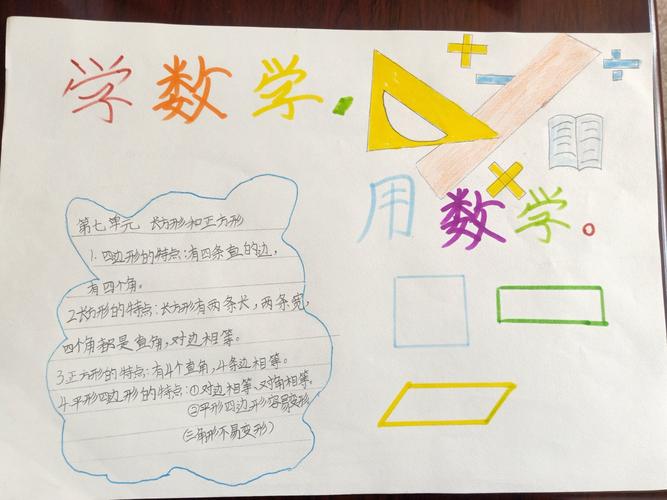 学数学,
用数学。
第七单元 长方形和正方形
1.四边形的特点:有四条直的边,
有四个角。
2.长方形的特点:长方形有两条长,两条宽,
四个角都是直角,对边相等。
3.正方形的特点:有4个直角,4条边相等。
4.平行四边形的特点:①对边相等、对角相等。
②平行四边形容易变形
(三角形不易变形)